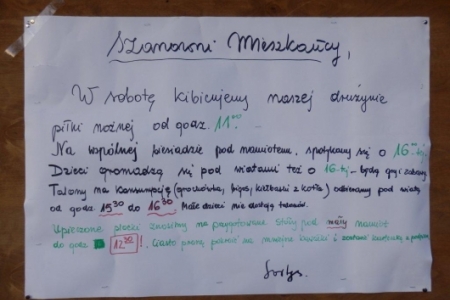 Szanowni Mieszkańcy,
W sobotę kibicujemy naszej drużynie
piłki nożnej od godz. 11⁰⁰
Na wspólnej biesiadzie pod namiotem, spotykamy się o 16⁰⁰-tej
Dzieci gromadzą się pod wiatami też o 16-tej - będą gry i zabawy
Talony na konsumpcję (grochówka, bigos, kiełbaski z kotła) odbieramy pod wiatą
od godz. 15³⁰ do 16³⁰ Małe dzieci nie dostają talonów.
Upieczone placki znosimy na przygotowane stoły pod mały namiot
do godz. 12³⁰! Ciasto proszę pokroić na nieduże kawałki i zostawić
Sołtys